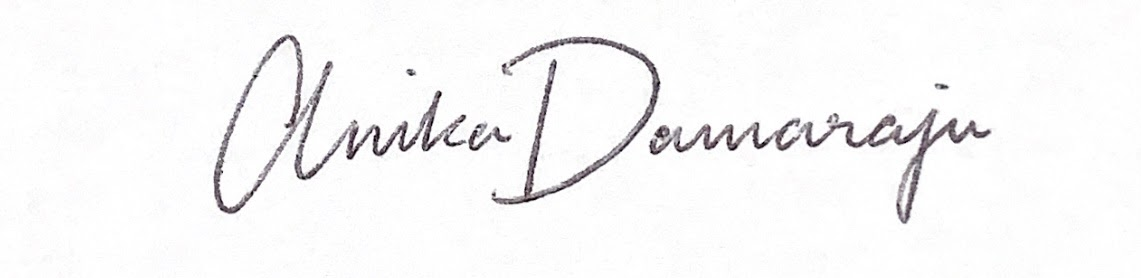 Anika Damaraju